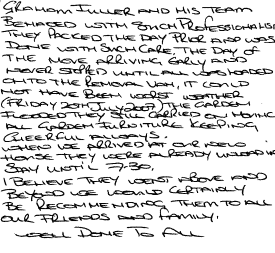 GRAHAM FULLER AND HIS TEAM
BEHAVED WITH SUCH PROFESSIONALISM
THEY PACKED THE DAY PRIOR AND WAS
DONE WITH SUCH CARE. THE DAY OF
THE MOVE ARRIVING EARLY AND
NEVER STOPPED UNTIL ALL WAS LOADED
ONTO THE REMOVAL VAN, IT COULD
NOT HAVE BEEN WORSE WEATHER
(FRIDAY 20TH JULY 2007) THE GARDEN
FLOODED THEY STILL CARRIED ON MOVING
ALL GARDEN FURNITURE KEEPING
CHEERFUL ALWAYS.
WHEN WE ARRIVED AT OUR NEW
HOUSE THEY WERE ALREADY UNLOADING
STAY UNTIL 7-30.
I BELIEVE THEY WENT ABOVE AND
BEYOND WE WOULD CERTAINLY
BE RECOMMENDING THEM TO ALL
OUR FRIENDS AND FAMILY.
WELL DONE TO ALL